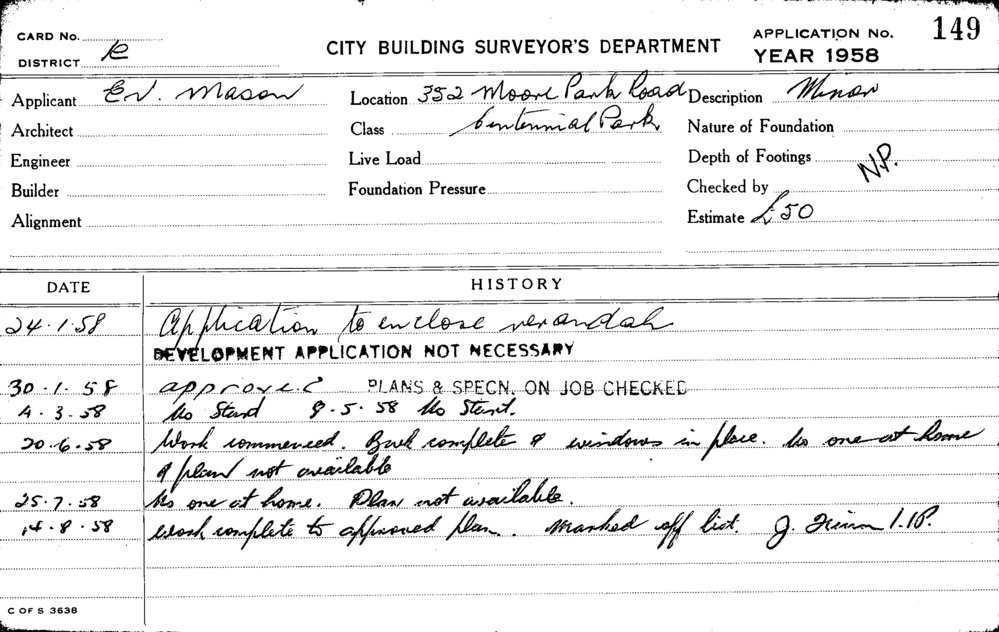 149
CARD No.
CITY BUILDING SURVEYOR'S DEPARTMENT
APPLICATION No.
DISTRICT
YEAR 1958
Applicant E.V. Mason Location 352 Moore Park Road Description Minor
Architect Class Centennial Park Nature of Foundation
Engineer Live Load Depth of Footings N.P.
Builder Foundation Pressure Checked by
Alignment Estimate £50
DATE HISTORY
24.1.58 Application to enclose verandah
DEVELOPMENT APPLICATION NOT NECESSARY
30.1.58 approved PLANS & SPECN. ON JOB CHECKED
4.3.58 No Start 8.5.58 No Start.
20.6.58 Work commenced. complete & windows in place. No one at home
& plan not available
25.7.58 No one at home. Plan not available.
14.8.58 Work complete to approved plan. Marked off list. J.
C OF S 3638